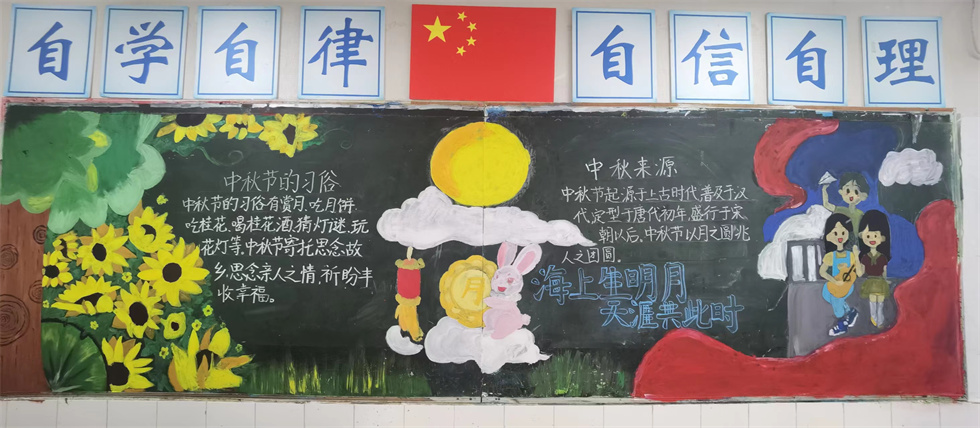 自学自律
自信自理
中秋节的习俗
中秋节的习俗有赏月、吃月饼、
吃桂花、喝桂花酒、猜灯谜、玩
花灯等,中秋节寄托思念故
乡,思念亲人之情,祈盼丰
收幸福。
月
中秋来源
中秋节起源于上古时代普及于汉
代定型于唐代初年,盛行于宋
朝以后。中秋节以月之圆兆
人之团圆。
海上生明月
天涯共此时